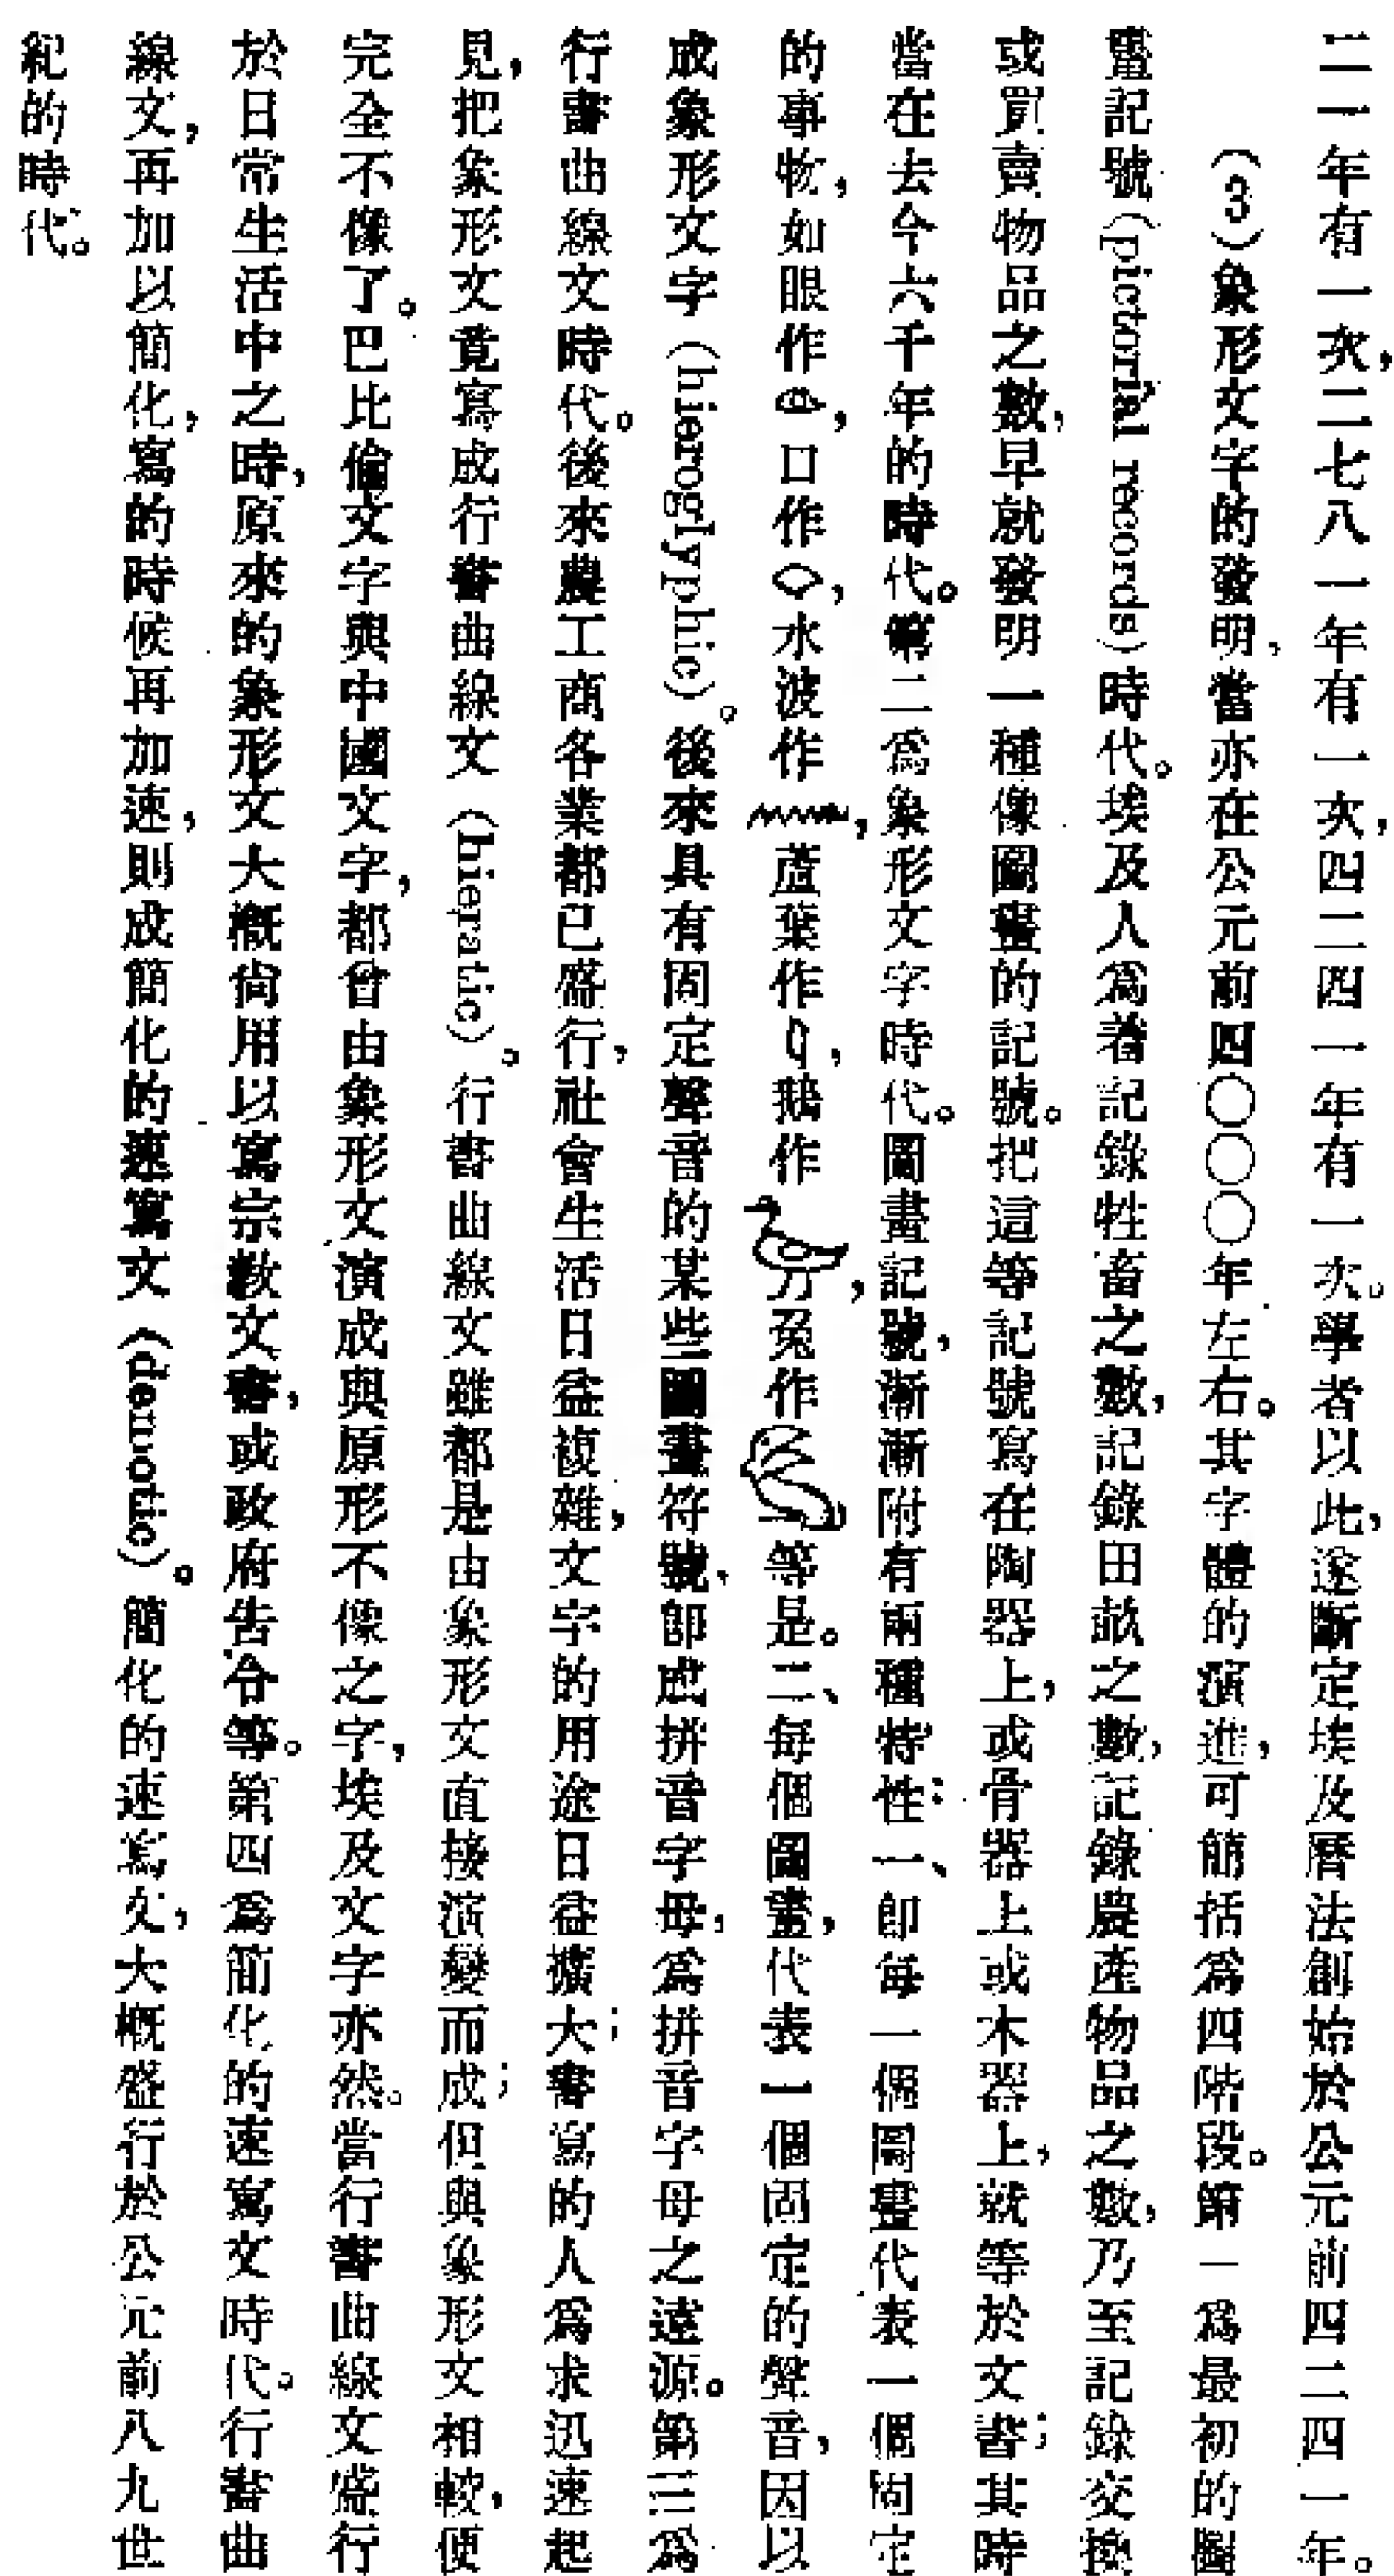 二一年有一次，二七八一年有一次，四二四一年有一次。學者以此，遂斷定埃及曆法創始於公元前四二四一年。
（3）象形文字的發明，當亦在公元前四〇〇〇年左右。其字體的演進，可簡括爲四階段。第一爲最初的圖
畫記號（pictorial records）時代。埃及人爲着記錄牲畜之數，記錄田畝之數，記錄農產物品之數，乃至記錄交換
或買賣物品之數，早就發明一種像圖畫的記號。把這等記號寫在陶器上，或骨器上或木器上，就等於文書；其時
當在去今六千年的時代。第二爲象形文字時代。圖畫記號，漸漸附有兩種特性：一、即每一個圖畫代表一個固定
的事物，如眼作，口作，水波作，蘆葉作，鵝作，方兔作等是。二、每個圖畫，代表一個固定的聲音，因以
成象形文字（hieroglyphic）。後來具有固定聲音的某些圖畫符號，即成拼音字母，爲拼音字母之遠源。第三爲
行書曲線文時代。後來農工商各業都已盛行，社會生活日益複雜，文字的用途日益擴大；書寫的人爲求迅速起
見，把象形文竟寫成行書曲線文（hieratic）。行書曲線文雖都是由象形文直接演變而成；但與象形文相較，便
完全不像了。巴比倫文字與中國文字，都曾由象形文演成與原形不像之字，埃及文字亦然。當行書曲線文盛行
於日常生活中之時，原來的象形文大概尚用以寫宗教文書，或政府告令等。第四爲簡化的速寫文時代。行書曲
線文，再加以簡化，寫的時候再加速，則成簡化的速寫文（demotic）。簡化的速寫久，大概盛行於公元前八九世
紀的時代。